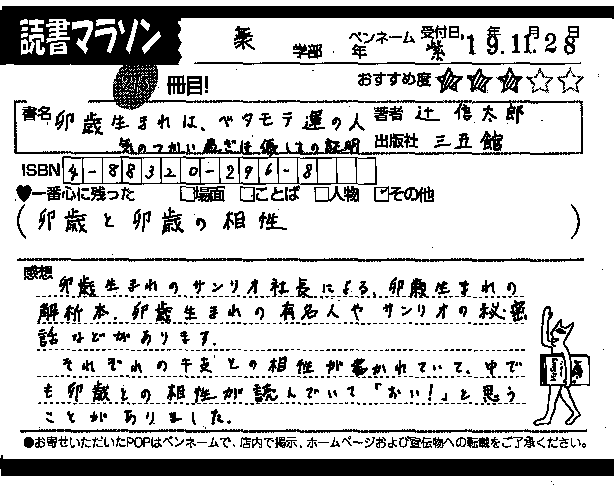 読書マラソン
薬 学部 年 ペンネーム 紫 受付日, '19年11月28日
冊目!
おすすめ度 ★★★☆☆
書名 卯歳生まれは、ベタモテ運の人
気のつかい過ぎは優しさの証明
著者 辻 信太郎
出版社 三五館
ISBN 4-88320-296-8
♥一番心に残った □場面 □ことば □人物 ☑その他
(卯歳と卯歳の相性)
感想
卯歳生まれのサンリオ社長による、卯歳生まれの
解析本。卯歳生まれの有名人やサンリオの秘密
話などがあります。
それぞれの干支との相性が書かれていて、中で
も卯歳との相性が読んでいて「おい!」と思う
ことがありました。
●お寄せいただいたPOPはペンネームで、店内で掲示、ホームページおよび宣伝物への転載をご了承ください。